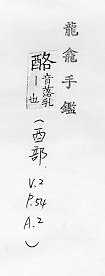 龍龕手鑑
酪音落乳
｜也
(酉部.
V.2
P.54
A.2
)